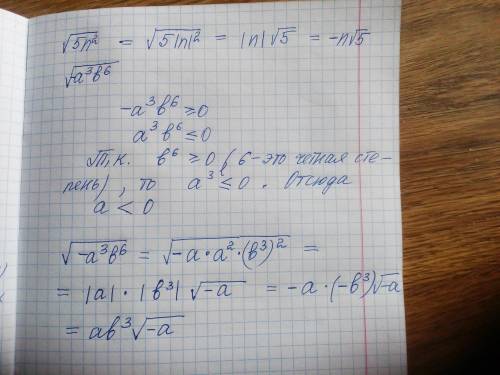 √5n² = √5|n|² = |n|√5 = -n√5
√a³в⁶
-a³в⁶ ≥ 0
a³в⁶ ≤ 0
Т.к. в⁶ ≥ 0 (6-это четная сте-
пень), то a³ ≤ 0. Отсюда
a < 0
√-a³в⁶ = √-a·a²·(в³)² =
= |a|·|в³|√-a = -a·(-в³)√-a
= aв³√-a